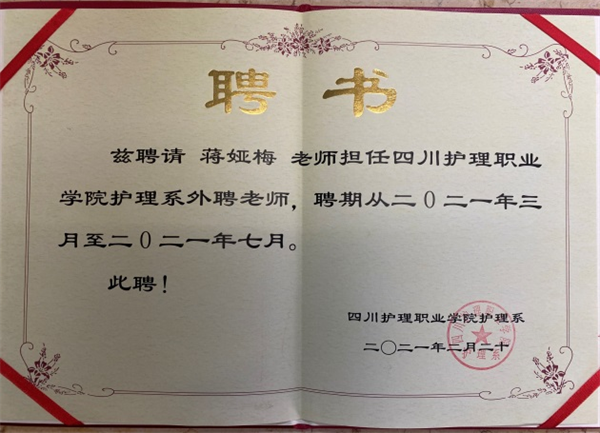 聘 书
兹聘请 蒋娅梅 老师担任四川护理职业
学院护理系外聘老师，聘期从二0二一年三
月至二0二一年七月。
此聘！
四川护理职业学院护理系
二〇二一年二月二十